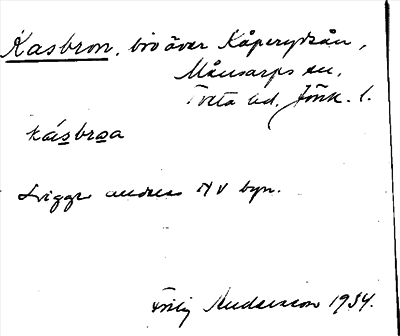 Kasbron, bro över Kåperydsån,
Månsarps sn,
Tveta hd, Jönk. l.
kásbroa
Ligger NV byn.
Andersson 1934.